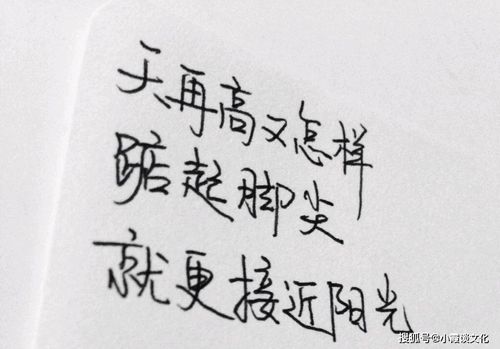 天再高又怎样
踮起脚尖
就更接近阳光
搜狐号@小霞谈文化